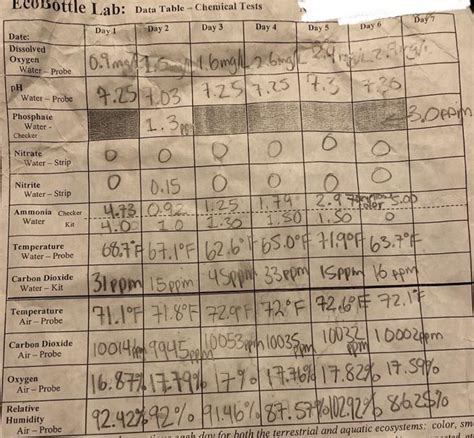 EcoBottle Lab: Data Table – Chemical Tests
Date: Day 1 Day 2 Day 3 Day 4 Day 5 Day 6 Day 7
Dissolved Oxygen Water – Probe 0.9mg/L 1.6mg/L 2.6mg/L
pH Water – Probe 7.25 7.03 7.25 7.25 7.3
Phosphate Water - Checker 1.3 3.0ppm
Nitrate Water – Strip 0 0 0 0 0 0
Nitrite Water – Strip 0 0.15 0 0 0 0
Ammonia Checker 4.73 0.92 1.25 1.79
Water Kit 4.0 1.0 1.30 1.50 1.50 0
Temperature Water – Probe 68.7°F 67.1°F 62.6°F 65.0°F 71.9°F 63.7°F
Carbon Dioxide Water – Kit 31ppm 15ppm 45ppm 33ppm 15ppm 16 ppm
Temperature Air – Probe 71.1°F 71.8°F 72.9°F 72°F 72.6°F 72.1°F
Carbon Dioxide Air – Probe 10014ppm 9945ppm 10053ppm 10035ppm 10032 ppm 10002ppm
Oxygen Air – Probe 16.87% 17.79% 17% 17.76% 17.82% 17.59%
Relative Humidity Air – Probe 92.42% 92% 91.46% 87.57% 102.92% 86.25%
each day for both the terrestrial and aquatic ecosystems: color,